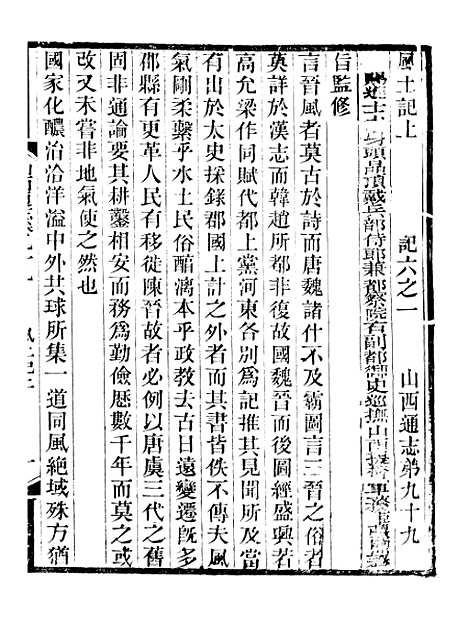 風土記上 記六之一 山西通志第九十九
頭品頂戴兵部侍郎兼都察院右副都御史巡撫山西
旨監修
言晉風者莫古於詩而唐魏諸什不及霸圖言三晉之俗者
莫詳於漢志而韓趙所都非復故國魏晉而後圖經盛興若
高允梁作同賦代都上黨河東各別爲記推其見聞所及當
有出於太史採錄郡國上計之外者而其書皆佚不傳夫風
氣剛柔繫乎水土民俗醕漓本乎政教去古日遠變遷旣多
郡縣有更革人民有移徙陳晉故者必例以唐虞三代之舊
固非通論要其耕鑿相安而務爲勤儉歷數千年而莫之或
改又未嘗非地氣使之然也
國家化醲治洽洋溢中外共球所集一道同風絕域殊方猶